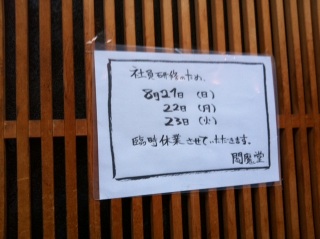 社員研修のため、
8月21日（日）
22日（月）
23日（火）
臨時休業させていただきます。
閻魔堂